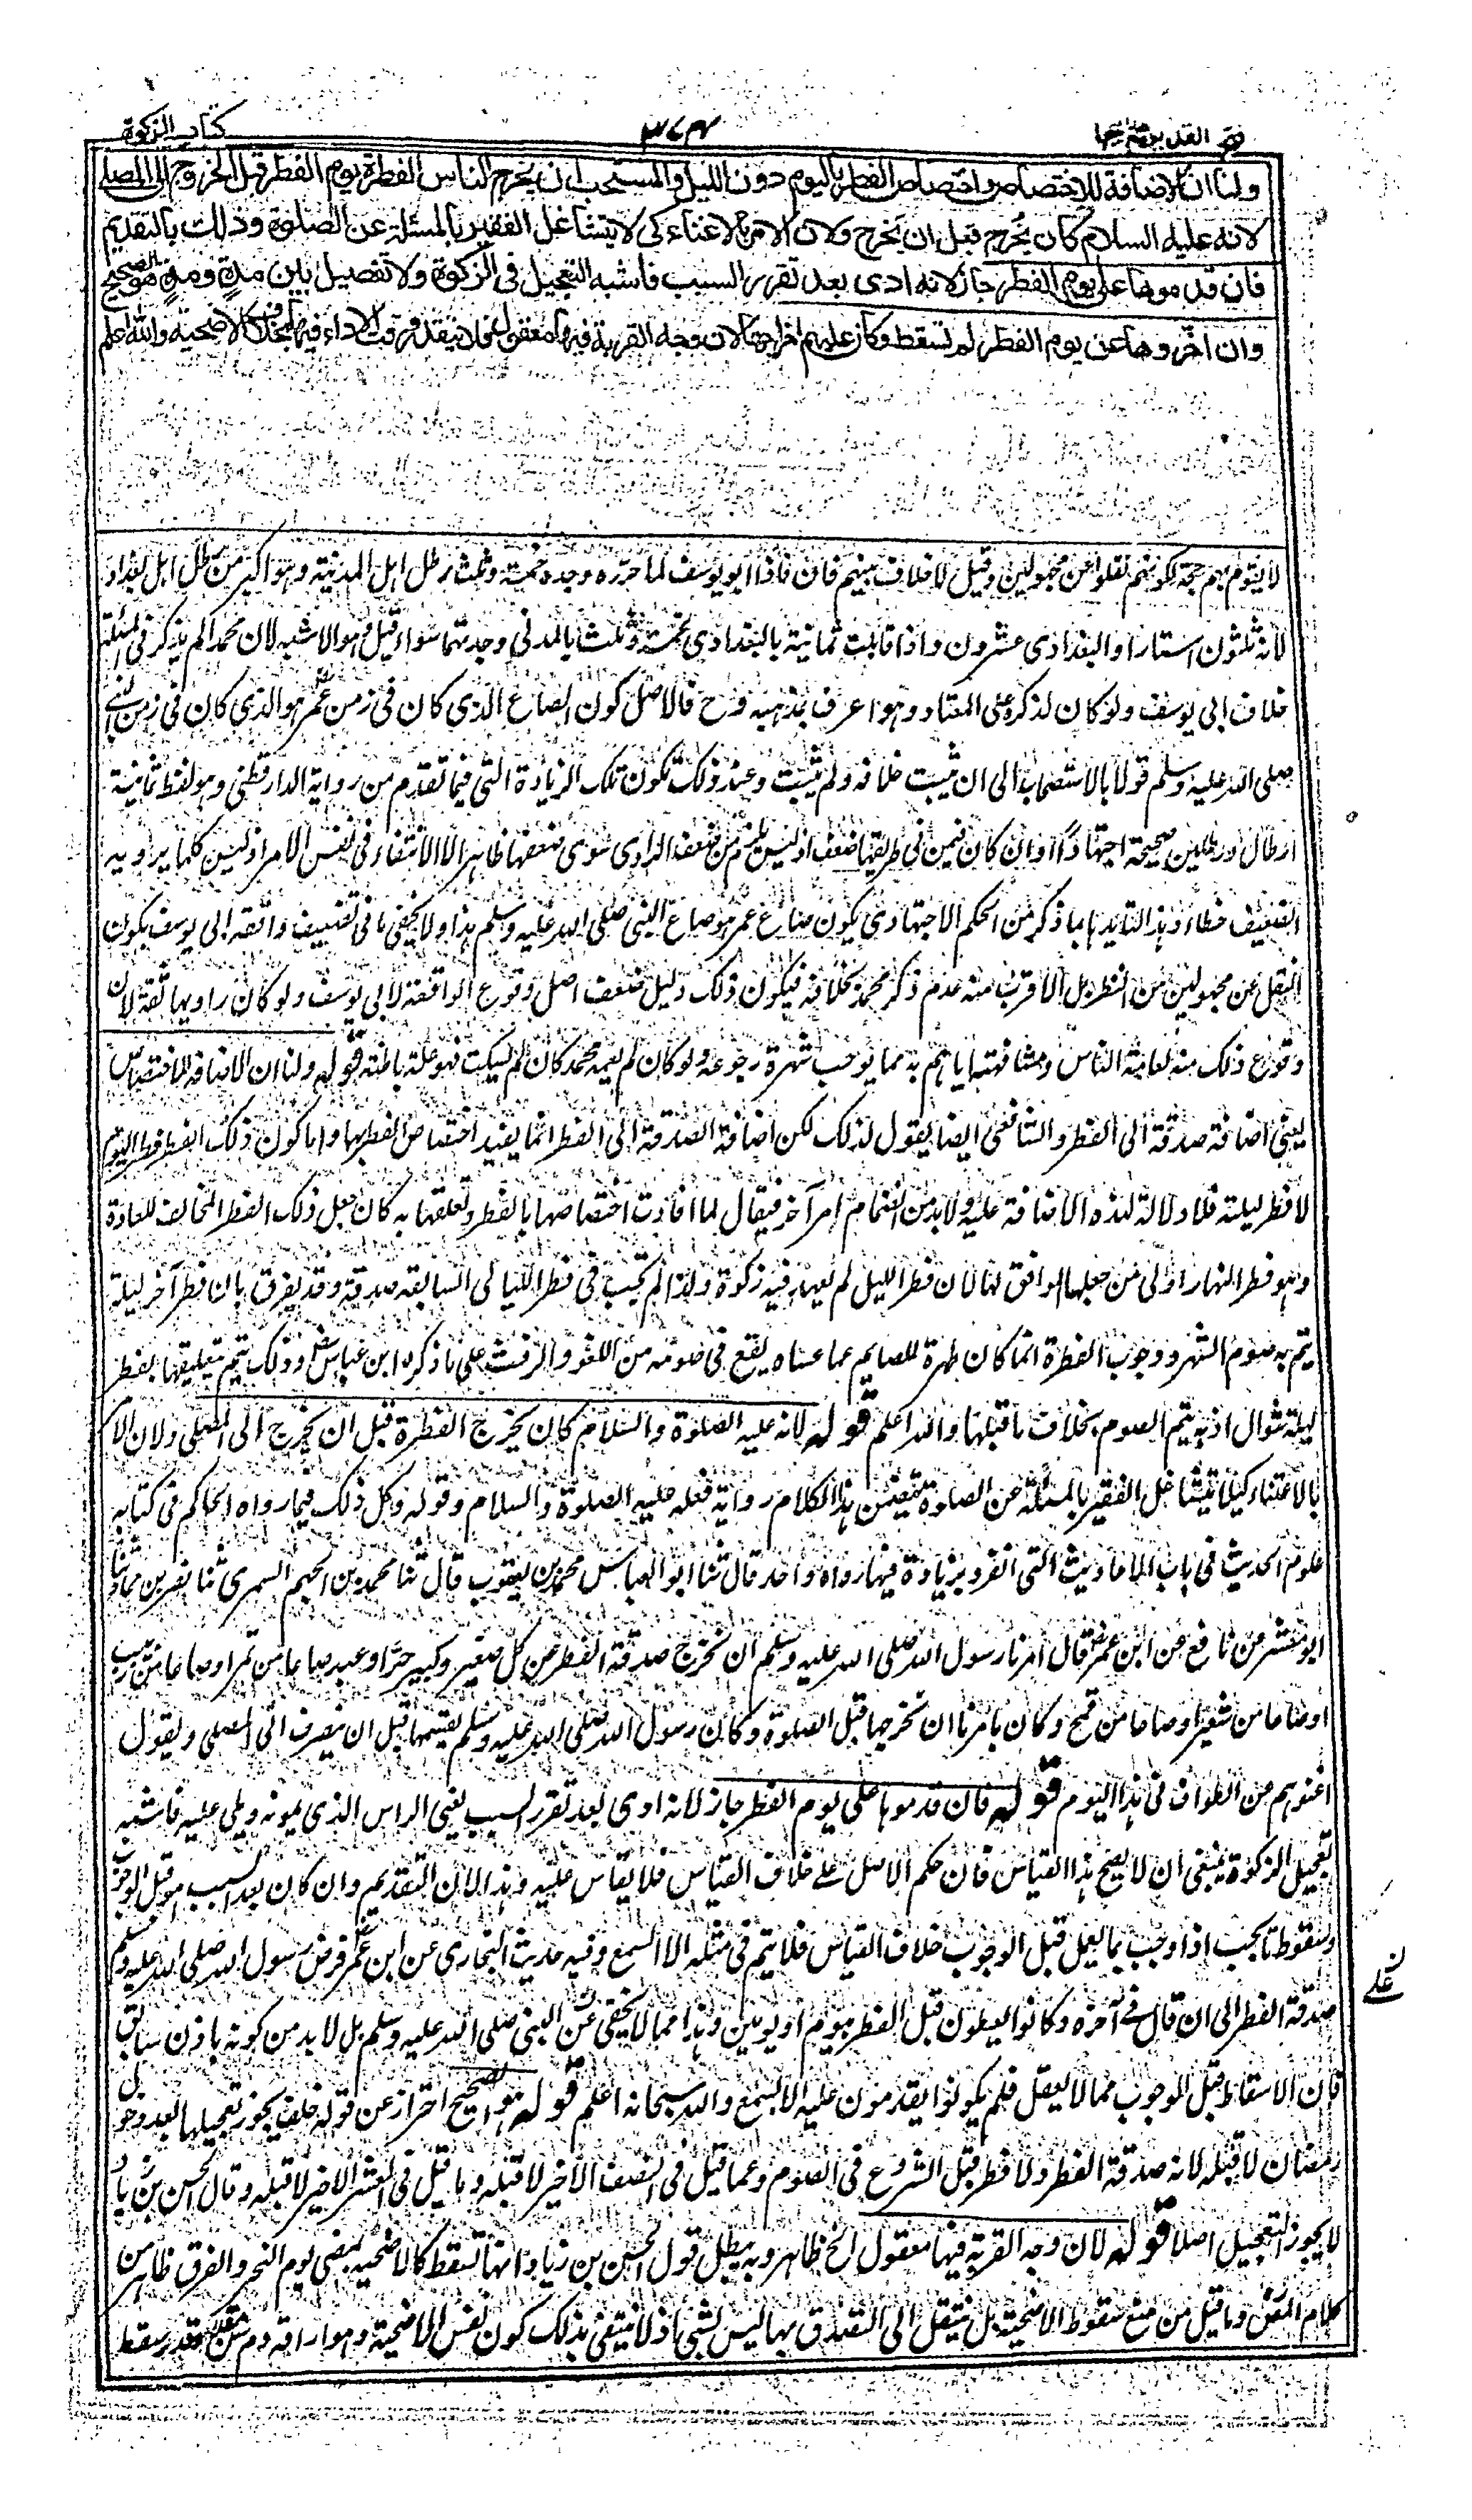 كتاب الزكوة
ولنا ان الاضافة للاختصاص واختصاص الفطر باليوم دون الليل والمستحب ان يخرج الناس الفطرة يوم الفطر قبل الخروج الى المصلى
لانه عليه السلام كان يخرج قبل ان يخرج ولان الامر بالاغناء كى لا يتشاغل الفقير بالمسئلة عن الصلوة وذلك بالتقديم
فان قدموها على يوم الفطر جاز لانه ادى بعد تقرر السبب فاشبه التعجيل فى الزكوة ولا تفصيل بين مدة ومدة هو الصحيح
وان اخروها عن يوم الفطر لم تسقط وكان عليهم اخراجها لان وجه القربة فيها معقول فلا يتقدر وقت الاداء فيها بخلاف الاضحية والله اعلم
لا يقوم بهم حجة لكونهم نقلوا عن مجهولين وقيل لا خلاف بينهم فان ابا يوسف لما حرره وجده خمسة وثلث رطل اهل المدينة وهو اكبر من رطل اهل بغداد
لانه ثلثون استارا والبغدادى عشرون واذا قابلت ثمانية بالبغدادى بخمسة وثلث بالمدنى وجدتهما سواء قيل وهو الاشبه لان محمدا لم يذكر فى المسئلة
خلاف ابى يوسف ولو كان لذكره على المعتاد وهو اعرف بمذهبه وح فالاصل كون الصاع الذى كان فى زمن عمر هو الذى كان فى زمن النبى
صلى الله عليه وسلم قولا بالاستصحاب الى ان يثبت خلافه ولم يثبت وعند ذلك تكون تلك الزيادة التى فيما تقدم من رواية الدارقطنى وهو لفظ ثمانية
ارطال ورطلين صحيحة اجتهادا وان كان فيمن فى طريقها ضعف اذ ليس يلزم من ضعف الراوى سوى ضعفها ظاهرا لا الانتفاء فى نفس الامر اذ ليس كلما يرويه
الضعيف خطاء وهذا لتايدها بما ذكر من الحكم الاجتهادى بكون صاع عمر هو صاع النبى صلى الله عليه وسلم هذا ولا يخفى ما فى تضعيف واقعة ابى يوسف بكون
النقل عن مجهولين من النظر بل الاقرب منه عدم ذكر محمد لخلافه فيكون ذلك دليل ضعف اصل وقوع الواقعة لابى يوسف ولو كان راويها ثقة لان
وقوع ذلك منه لعامة الناس ومشافهته اياهم به مما يوجب شهرة رجوعه ولو كان لم يعمه محمد كان لم يسكت فهو علة باطنة قوله ولنا ان الاضافة للاختصاص
يعنى اضافة صدقة الى الفطر والشافعى ايضا يقول لذلك لكن اضافة الصدقة الى الفطر انما يفيد اختصاص الفطر بها واما كون ذلك الفطر فطر اليوم
لا فطر ليلته فلا دلالة لهذه الاضافة عليه ولا بد من انضمام امر آخر فيقال لما افادت اختصاصها بالفطر وتعلقها به كان جعل ذلك الفطر المخالف للعادة
وهو فطر النهار اولى من جعلها الموافق لها لان فطر الليل لم يعهد فيه زكوة ولذا لم تجب فى فطر الليالى السابقة صدقة وقد يفرق بان فطر آخر ليلة
يتم به صوم الشهر ووجوب الفطرة انما كان طهرة للصايم عما عساه يقع فى صومه من اللغو والرفث على ما ذكره ابن عباس وذلك يتم بتعليقها بفطر
ليلة شوال اذ به يتم الصوم بخلاف ما قبلها والله اعلم قوله لانه عليه الصلوة والسلام كان يخرج الفطرة قبل ان يخرج الى المصلى ولان الامر
بالاغناء كيلا يتشاغل الفقير بالمسئلة عن الصلوة يتضمن هذا الكلام رواية فعله عليه الصلوة والسلام وقوله وكل ذلك فيما رواه الحاكم فى كتابه
علوم الحديث فى باب الاحاديث التى انفرد بزيادة فيها رواه واحد قال ثنا ابو العباس محمد بن يعقوب قال ثنا محمد بن الجهم السمرى ثنا نصر بن حماد ثنا
ابو معشر عن نافع عن ابن عمر قال امرنا رسول الله صلى الله عليه وسلم ان نخرج صدقة الفطر عن كل صغير وكبير حر او عبد صاعا من تمر او صاعا من زبيب
او صاعا من شعير او صاعا من قمح وكان يامرنا ان نخرجها قبل الصلوة وكان رسول الله صلى الله عليه وسلم يقسمها قبل ان ينصرف الى المصلى ويقول
اغنوهم من الطواف فى هذا اليوم قوله فان قدموها على يوم الفطر جاز لانه ادى بعد تقرر السبب يعنى الراس الذى يمونه ويلى عليه فاشبه
تعجيل الزكوة ينبغى ان لا يصح هذا القياس فان حكم الاصل على خلاف القياس فلا يقاس عليه وهذا لان التقديم وان كان بعد السبب هو قبل الوجوب
وسقوط ما يجب اذا وجب بما يعمل قبل الوجوب خلاف القياس فلا يتم فى مثله الا السمع وفيه حديث البخارى عن ابن عمر فرض رسول الله صلى الله عليه وسلم
صدقة الفطر الى ان قال فى آخره وكانوا يعطون قبل الفطر بيوم او يومين وهذا مما لا يخفى عن النبى صلى الله عليه وسلم بل لا بد من كونه باذن سابق
فان الاسقاط قبل الوجوب مما لا يعقل فلم يكونوا يقدمون عليه الا بسمع والله سبحانه اعلم قوله هو الصحيح احتراز عن قول خلف يجوز تعجيلها بعد دخول
رمضان لا قبله لانه صدقة الفطر ولا فطر قبل الشروع فى الصوم وعما قيل فى النصف الاخير لا قبله وما قيل فى العشر الاخير لا قبله وقال الحسن بن زياد
لا يجوز التعجيل اصلا قوله لان وجه القربة فيها معقول الخ ظاهر وبه يبطل قول الحسن بن زياد انها تسقط كالاضحية بمضى يوم النحر والفرق ظاهر من
كلام المص وما قيل من منع سقوط الاضحية بل ينتقل الى التصدق بها ليس بشئ اذ لا ينتفى بذلك كون نفس الاضحية وهو اراقة دم سن مقدر قد سقط